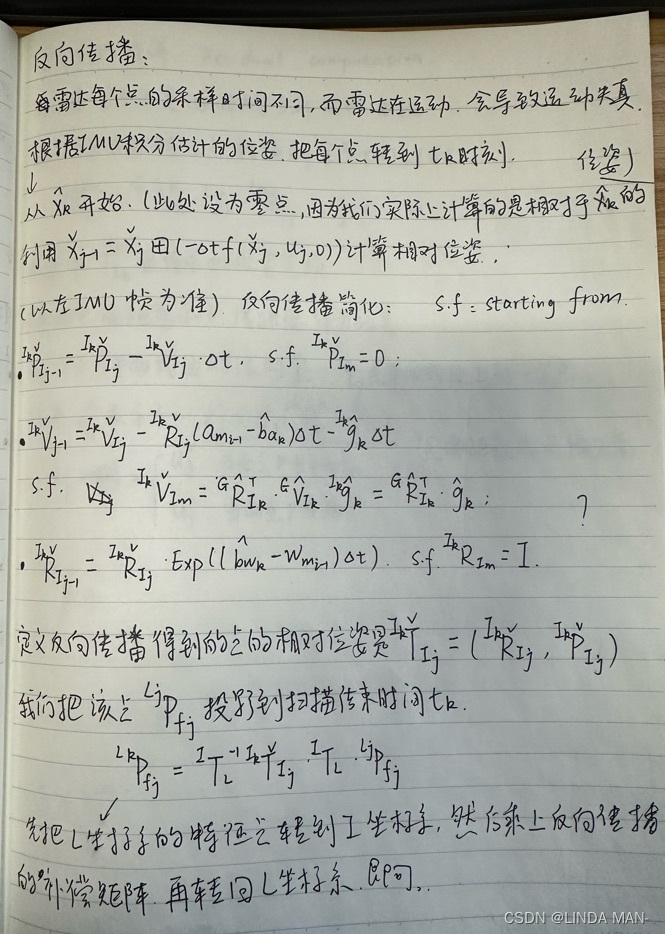 反向传播:
雷达每个点的采样时间不同,而雷达在运动.会导致运动失真.
根据IMU积分估计的位姿.把每个点转到 t_k时刻. 位姿)
↓
从 X̂_k 开始.(此处设为零点,因为我们实际上计算的是相对于 X̂_k 的
利用 X̌_{j-1} = X̌_j ⊞ (-Δt f(X̌_j, u_j, 0)) 计算相对位姿.
(以左IMU帧为准) 反向传播简化: s.f = starting from.
• ^{Ik}P̌_{Ij-1} = ^{Ik}P̌_{Ij} - ^{Ik}V̌_{Ij}·Δt. s.f. ^{Ik}P̌_{Im} = 0;
• ^{Ik}V̌_{Ij-1} = ^{Ik}V̌_{Ij} - ^{Ik}Ř_{Ij}(a_{m_{i-1}} - b̂_{a_k})Δt - ^{Ik}ĝ_k Δt
s.f. ^{Ik}V̌_{Im} = ^{G}R̂_{Ik}^T · ^{G}V̂_{Ik}. ^{Ik}ĝ_k = ^{G}R̂_{Ik}^T · ĝ_k; ?
• ^{Ik}Ř_{Ij-1} = ^{Ik}Ř_{Ij} · Exp((b̂_{w_k} - w_{m_{i-1}})Δt). s.f. ^{Ik}R_{Im} = I.
定义反向传播得到的点的相对位姿是 ^{Ik}Ť_{Ij} = (^{Ik}Ř_{Ij}, ^{Ik}P̌_{Ij})
我们把该点 ^{Lj}P_{fj} 投影到扫描结束时间 t_k.
^{Lk}P_{fj} = ^{I}T_L^{-1} ^{Ik}Ť_{Ij} · ^{I}T_L · ^{Lj}P_{fj}
先把L坐标系的特征点转到I坐标系,然后乘上反向传播
的补偿矩阵.再转回L坐标系.即可.
CSDN @LINDA MAN-